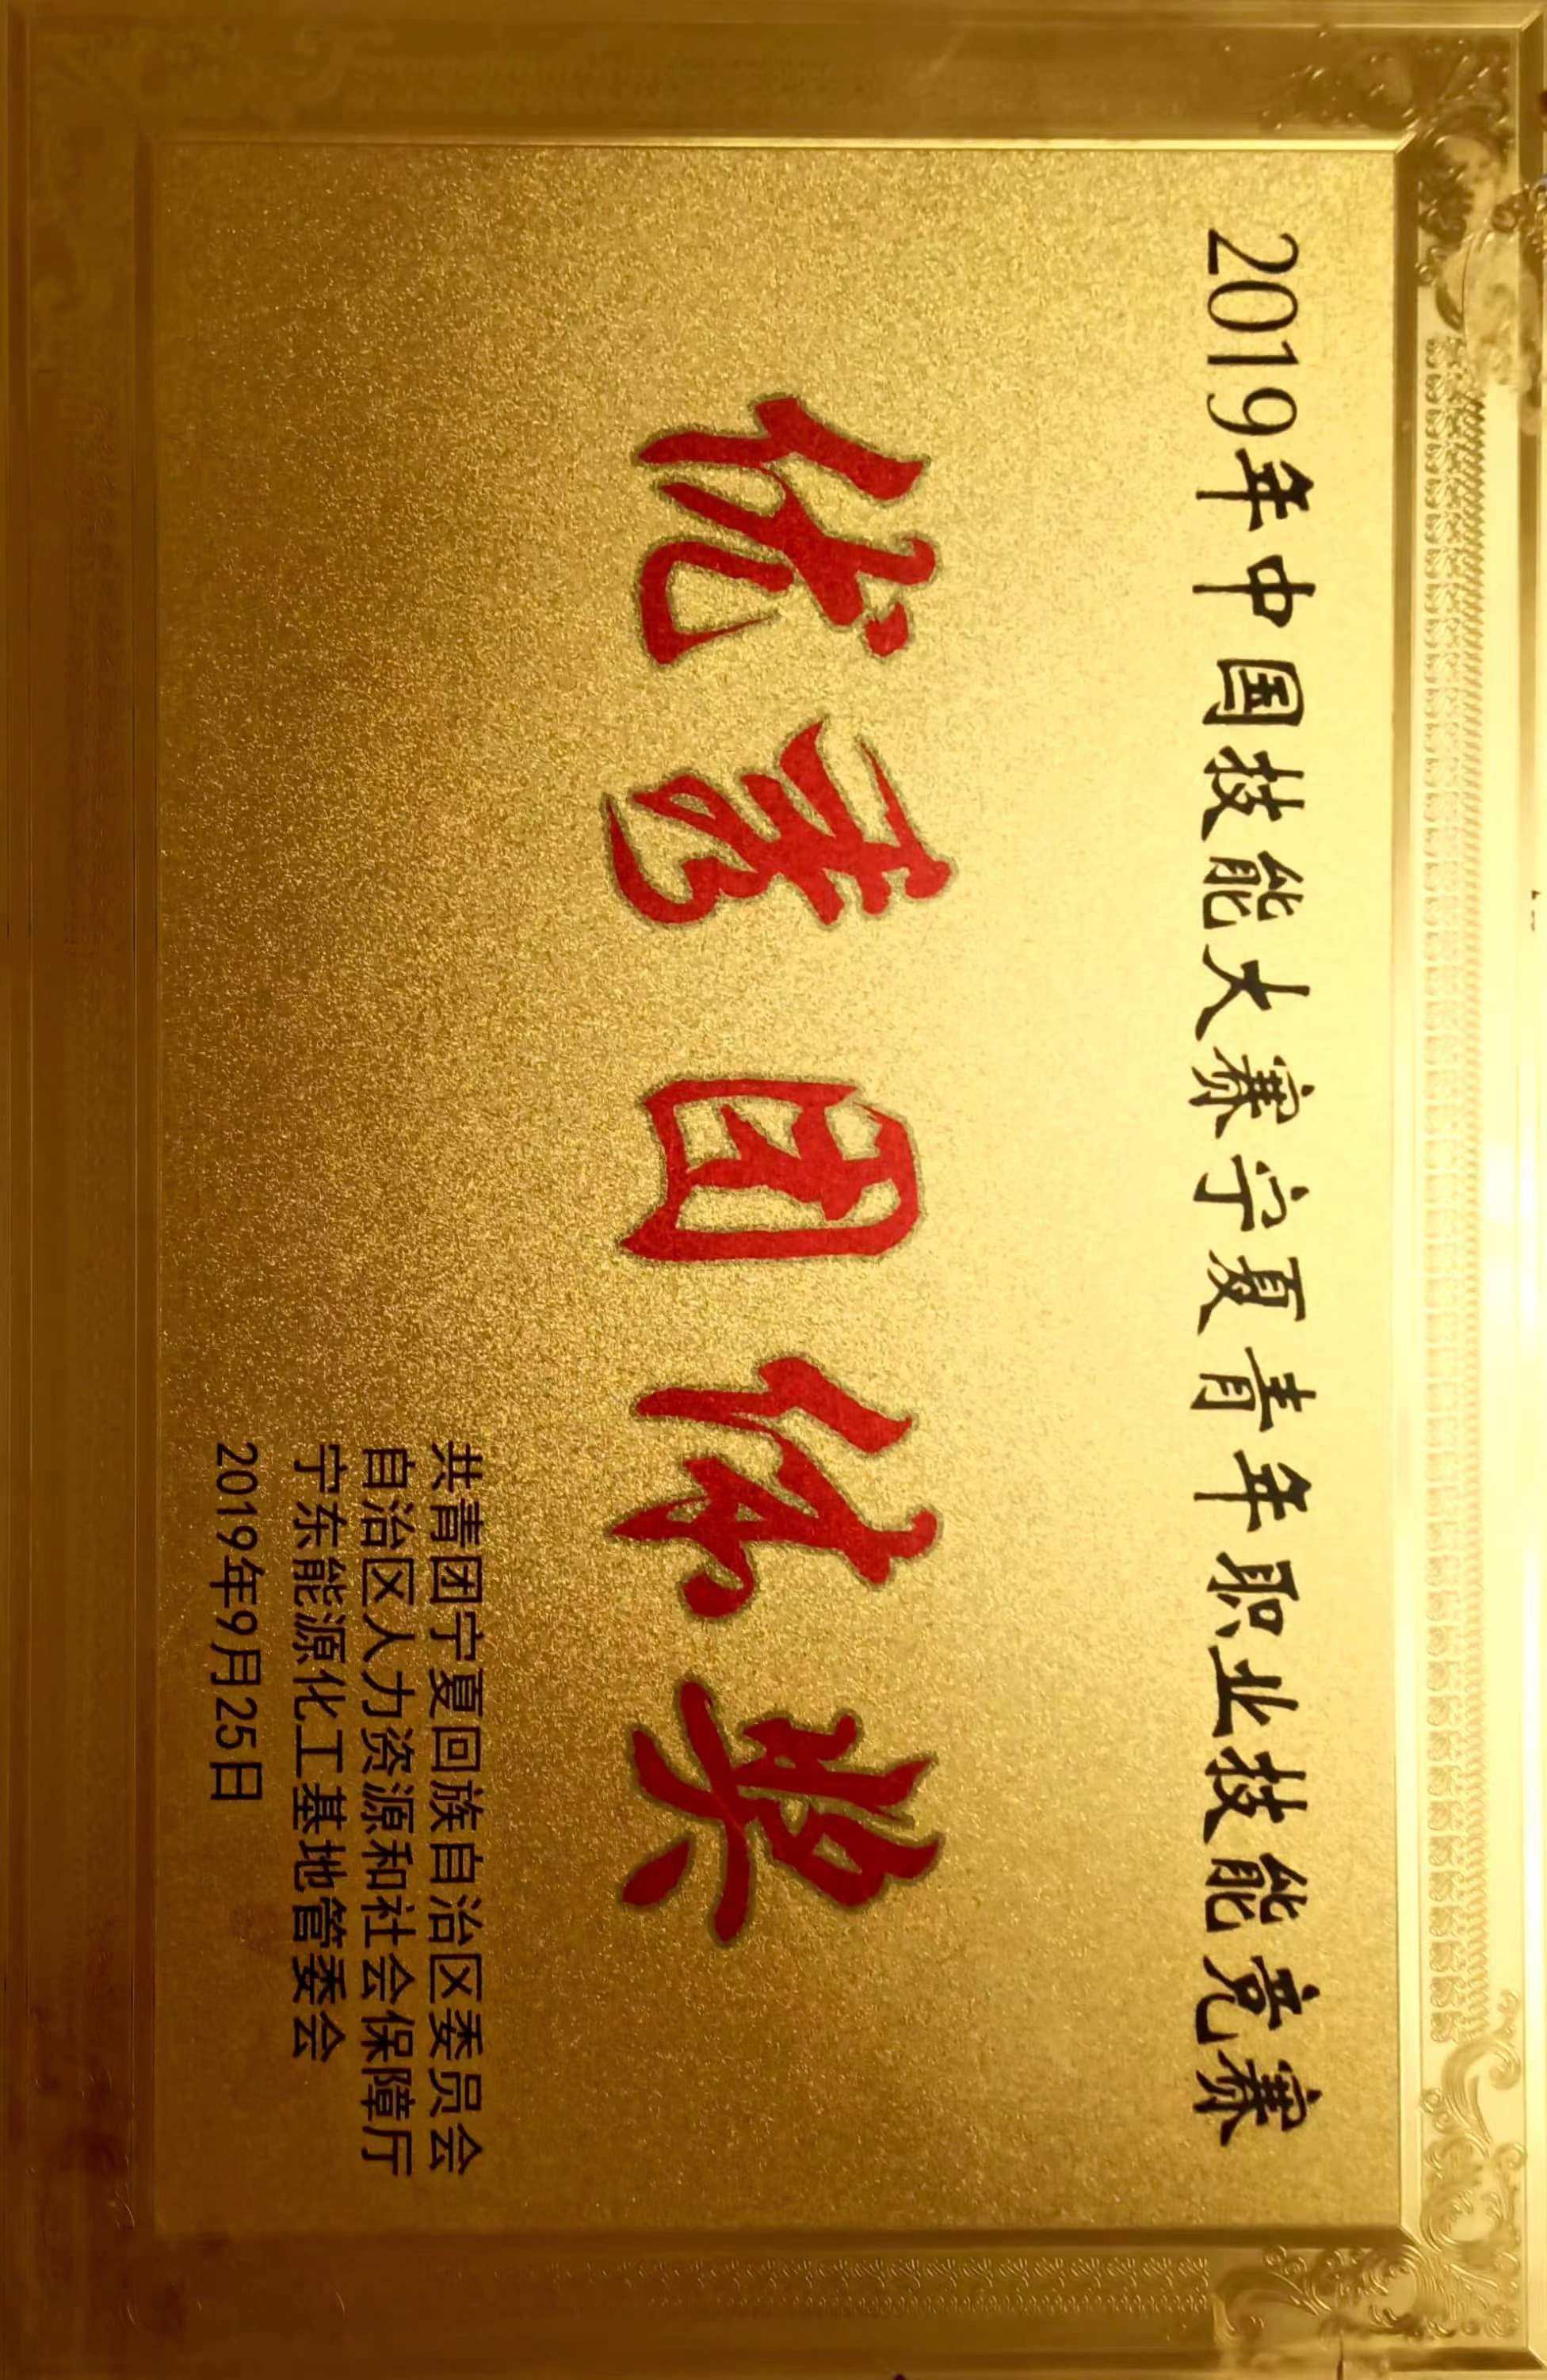 2019年中国技能大赛宁夏青年职业技能竞赛
优秀团体奖
共青团宁夏回族自治区委员会
自治区人力资源和社会保障厅
宁东能源化工基地管委会
2019年9月25日